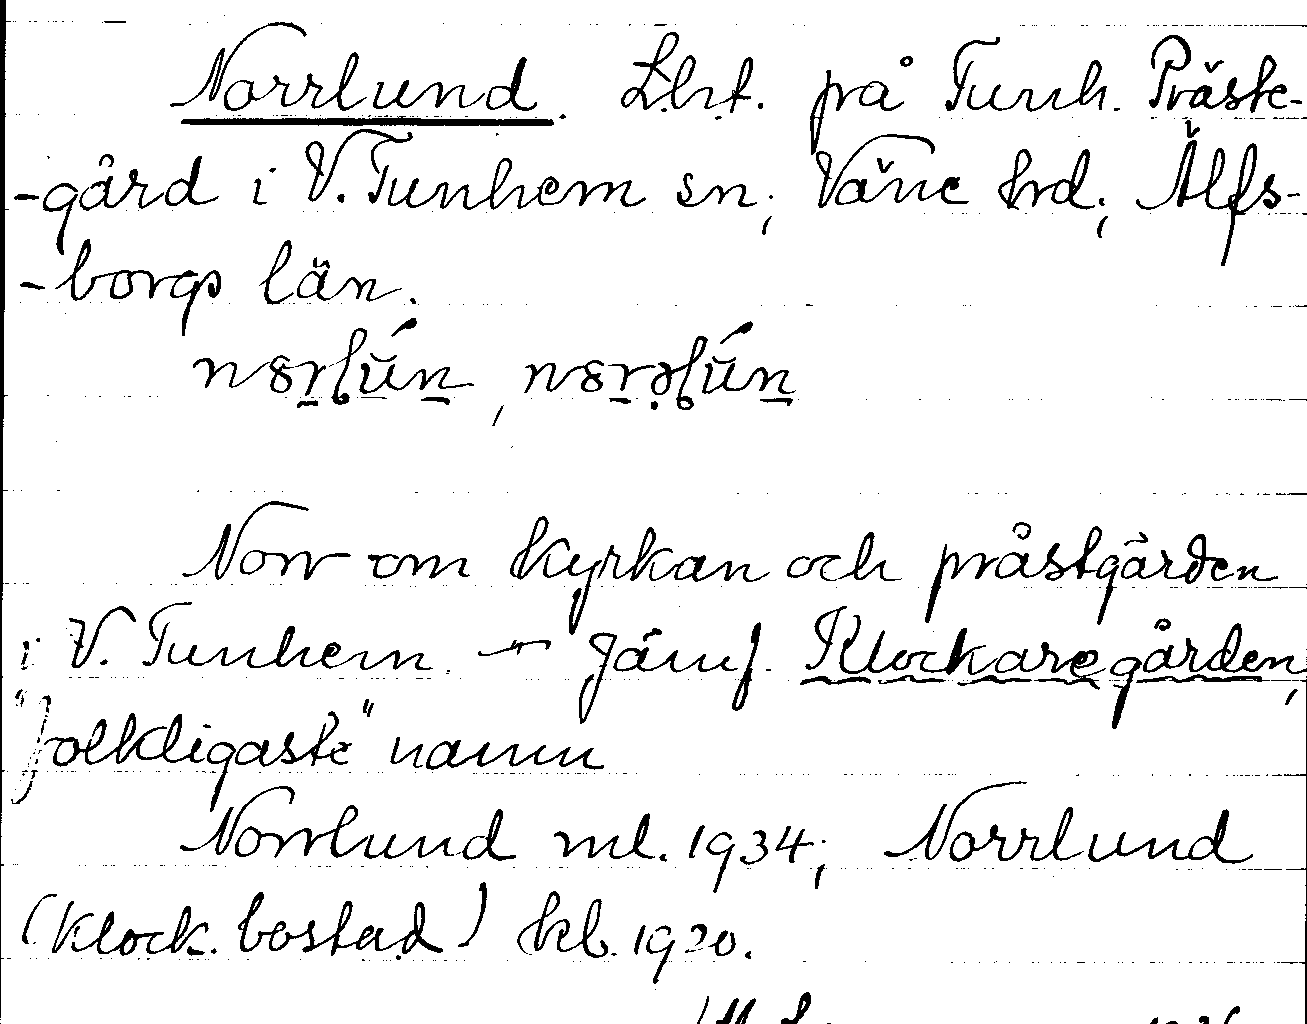 Norrlund. Lht. på Tunh. Präste-
-gård i V. Tunhem sn, Väne hd, Älfs-
-borgs län.
Norr om kyrkan och prästgården
i V. Tunhem. - Jämf. Klockaregården,
"folkligaste" namn
Norrlund ml. 1934; Norrlund
(Klock. bostad) kb. 1920.